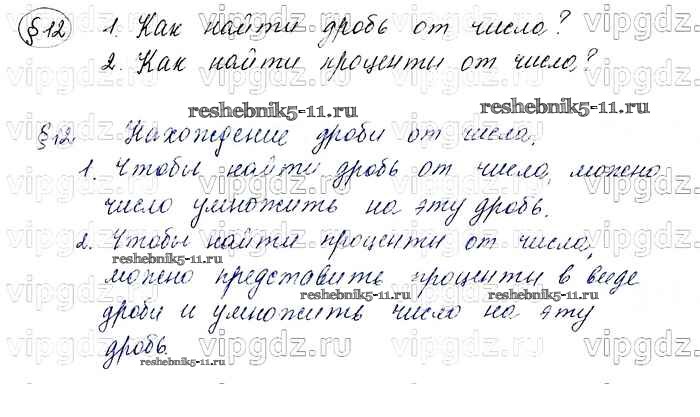 §12 1. Как найти дробь от числа?
2. Как найти проценты от числа?
reshebnik5-11.ru reshebnik5-11.ru
§12 Нахождение дроби от числа.
1. Чтобы найти дробь от числа, можно
число умножить на эту дробь.
2. Чтобы найти проценты от числа,
reshebnik5-11.ru
можно представить проценты в виде
reshebnik5-11.ru reshebnik5-11.ru
дроби и умножить число на эту
дробь.
reshebnik5-11.ru
vipgdz.ru